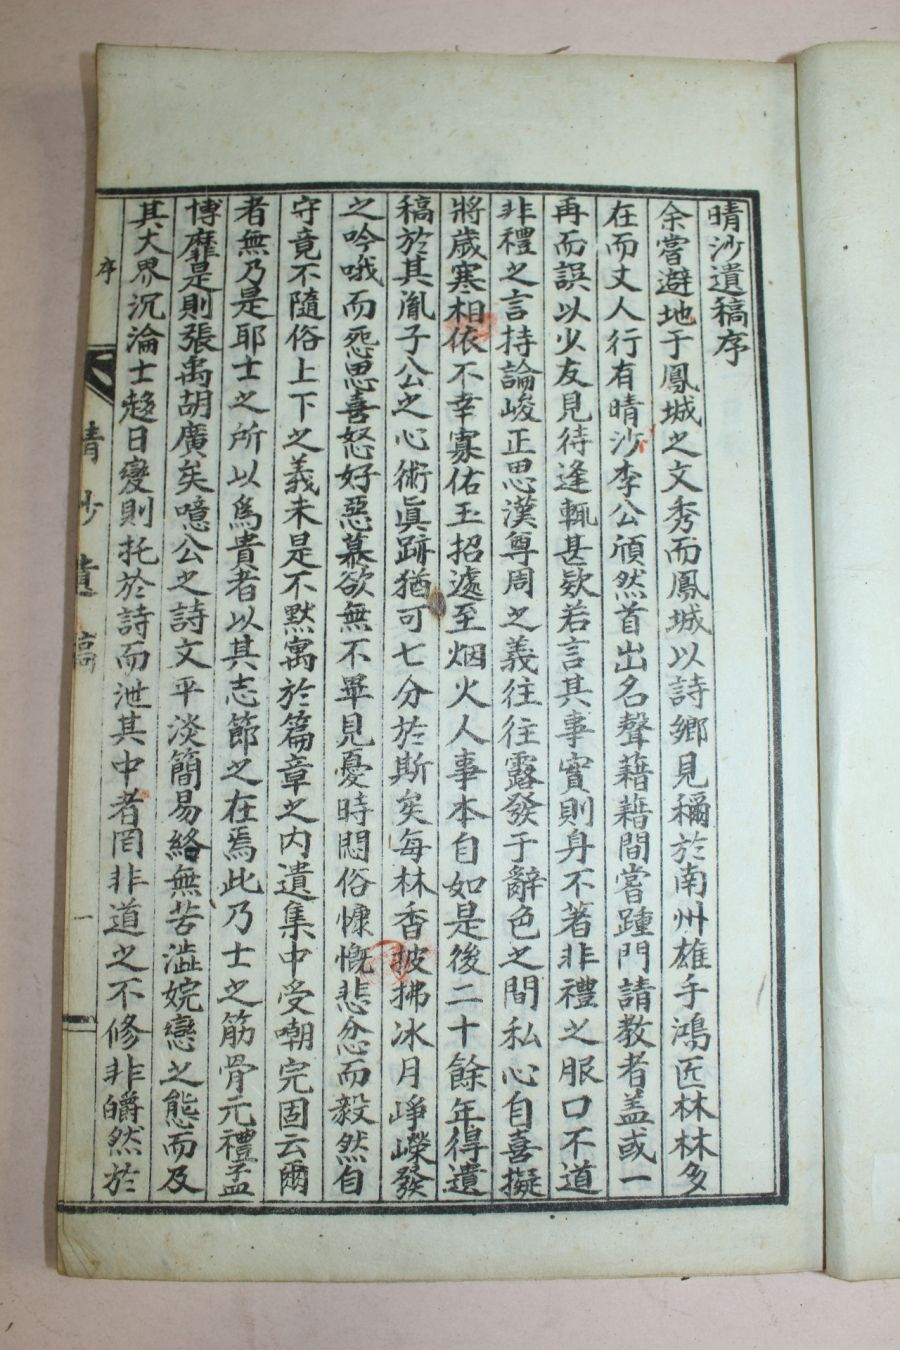 晴沙遺稿序
余嘗避地于鳳城之文秀而鳳城以詩鄉見稱於南州雄手鴻匠林林多
在而丈人行有晴沙李公頎然首出名聲藉藉間嘗踵門請教者盖或一
再而誤以少友見待逢輒甚欵若言其事實則身不著非禮之服口不道
非禮之言持論峻正思漢尊周之義往往露發于辭色之間私心自喜擬
將歲寒相依不幸寡佑玉招遽至烟火人事本自如是後二十餘年得遺
稿於其胤子公之心術眞跡猶可七分於斯矣每林香披拂冰月崢嶸發
之吟哦而怨思喜怒好惡慕欲無不畢見憂時悶俗慷慨悲忿而毅然自
守竟不隨俗上下之義未是不默寓於篇章之内遺集中受嘲完固云爾
者無乃是耶士之所以爲貴者以其志節之在焉此乃士之筋骨元禮孟
博靡是則張禹胡廣矣噫公之詩文平淡簡易絡無苦澁婉戀之態而及
其大界沉淪士趍日變則托於詩而泄其中者罔非道之不修非皭然於
序
晴沙遺稿
一